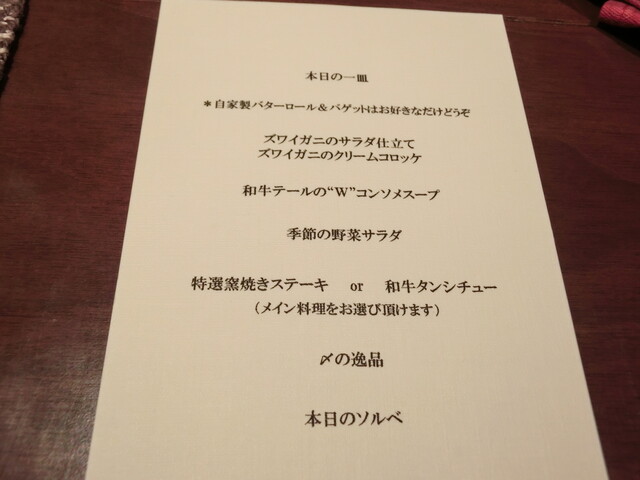 本日の一皿
＊自家製バターロール＆バゲットはお好きなだけどうぞ
ズワイガニのサラダ仕立て
ズワイガニのクリームコロッケ
和牛テールの“W”コンソメスープ
季節の野菜サラダ
特選窯焼きステーキ　or　和牛タンシチュー
（メイン料理をお選び頂けます）
〆の逸品
本日のソルベ